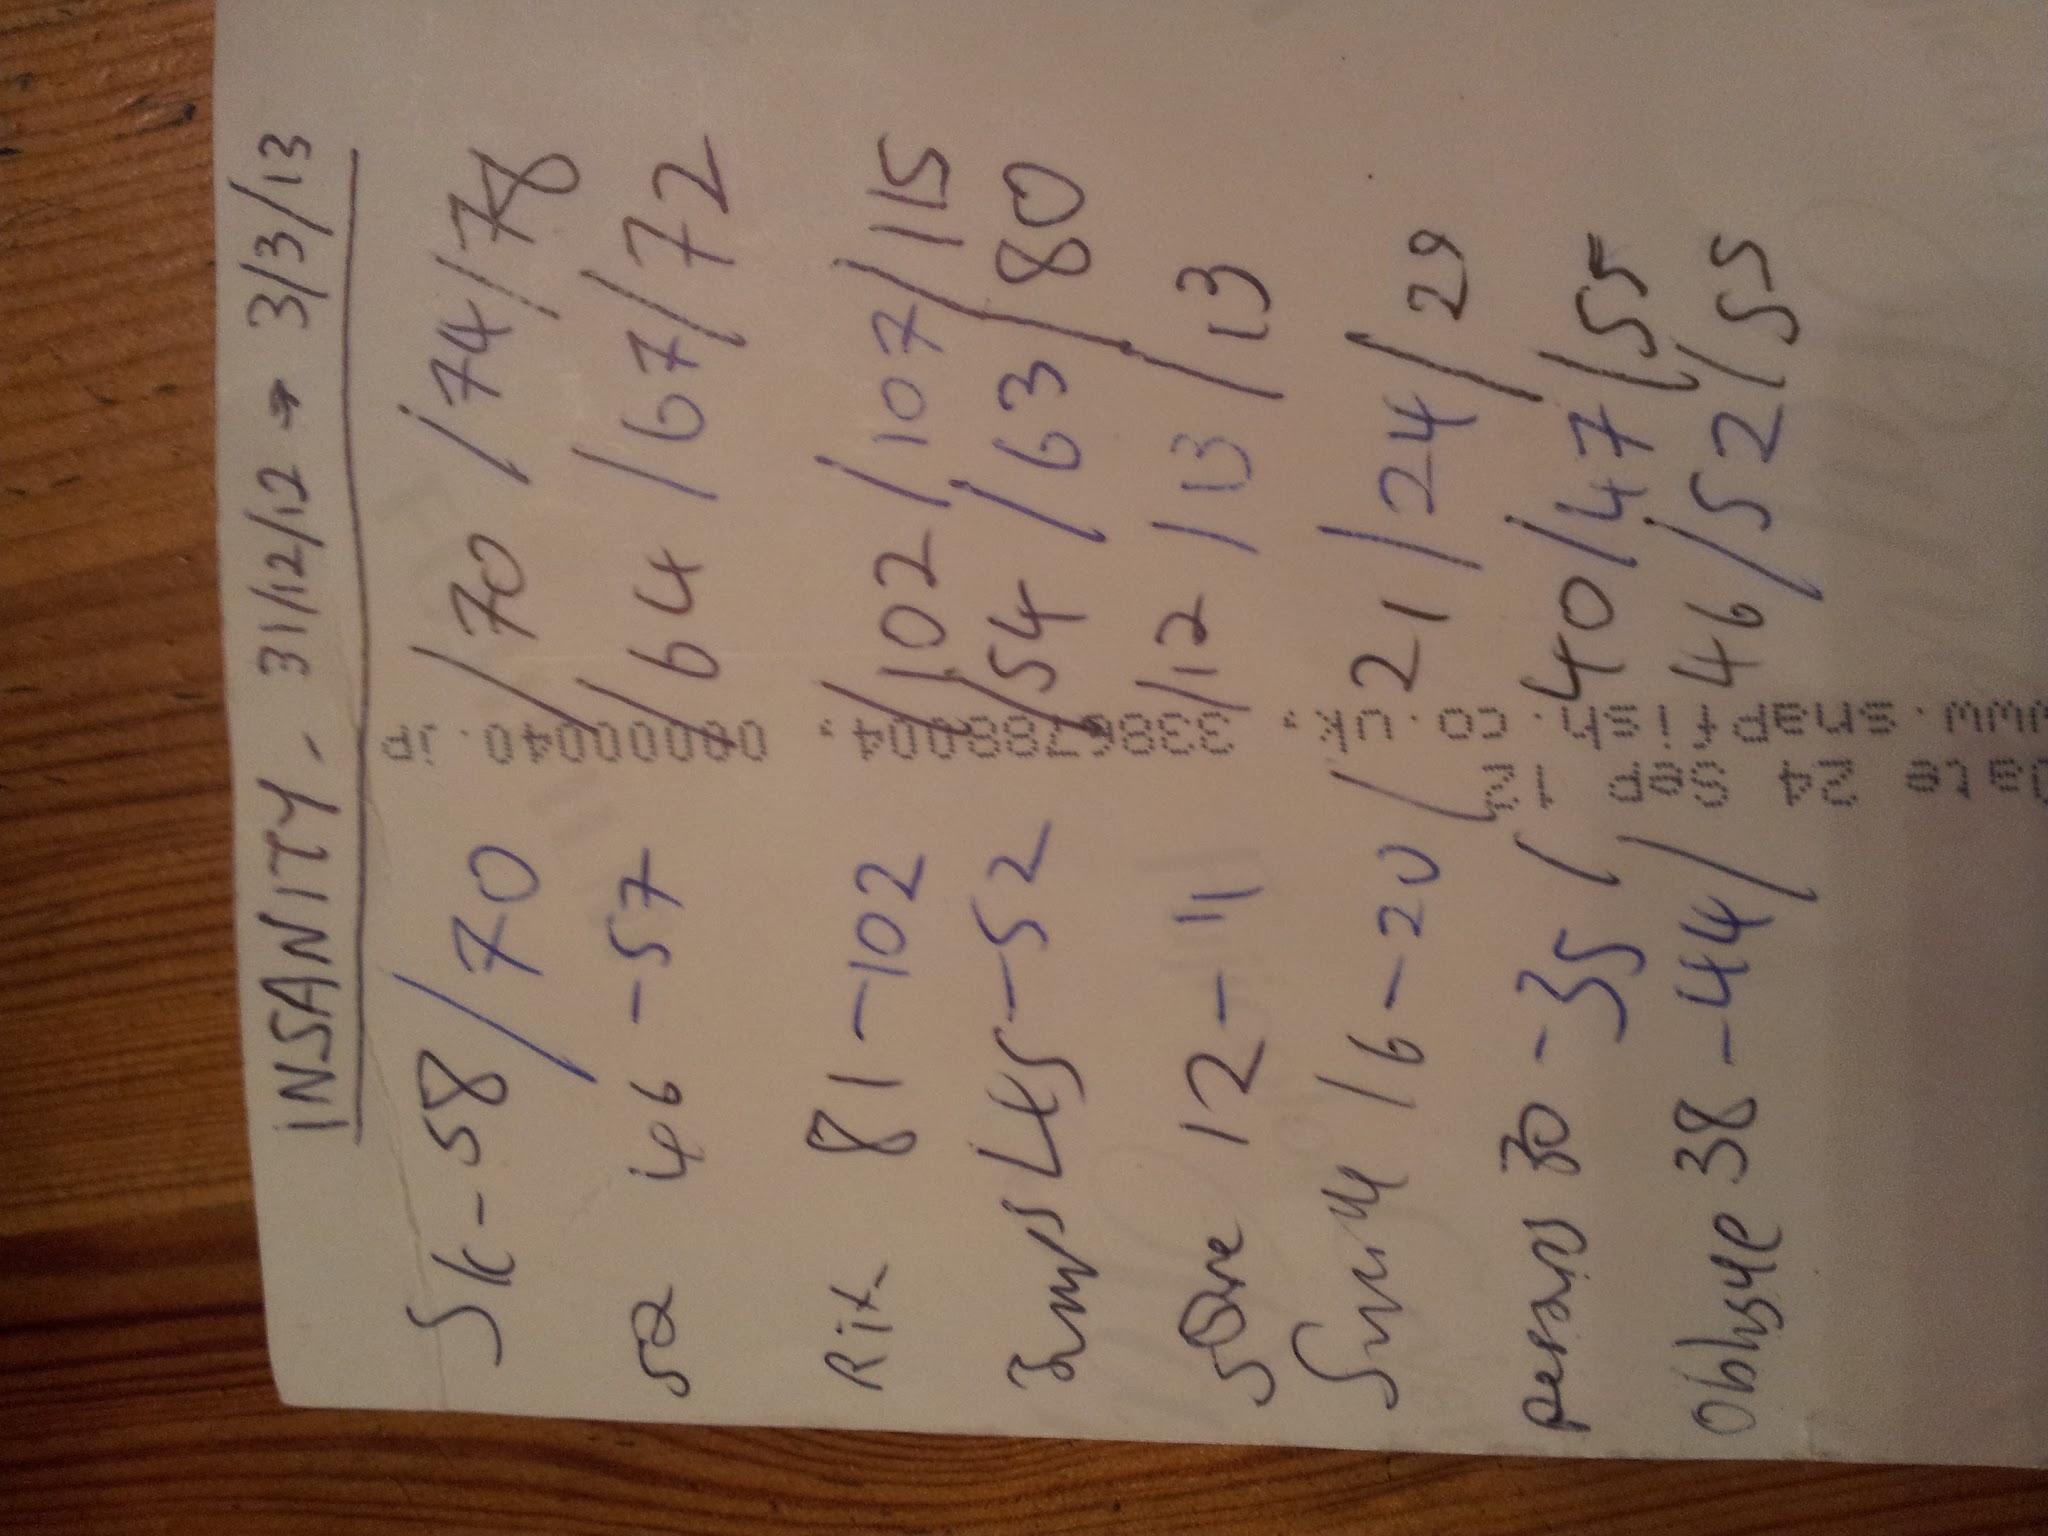 INSANITY - 31/12/12 → 3/3/13
SK - 58 / 70 / 70 / 74 / 78
46 - 57 / 64 / 67 / 72
81 - 102 / 102 / 107 / 115
Jumps 45 - 52 / 54 / 63 / 80
12 - 11 / 12 / 13 / 13
16 - 20 / 21 / 24 / 29
30 - 35 / 40 / 47 / 55
38 - 44 / 46 / 52 / 55
date 24 Sep 12
www.snapfish.co.uk, 3386788004, 000000040.jp